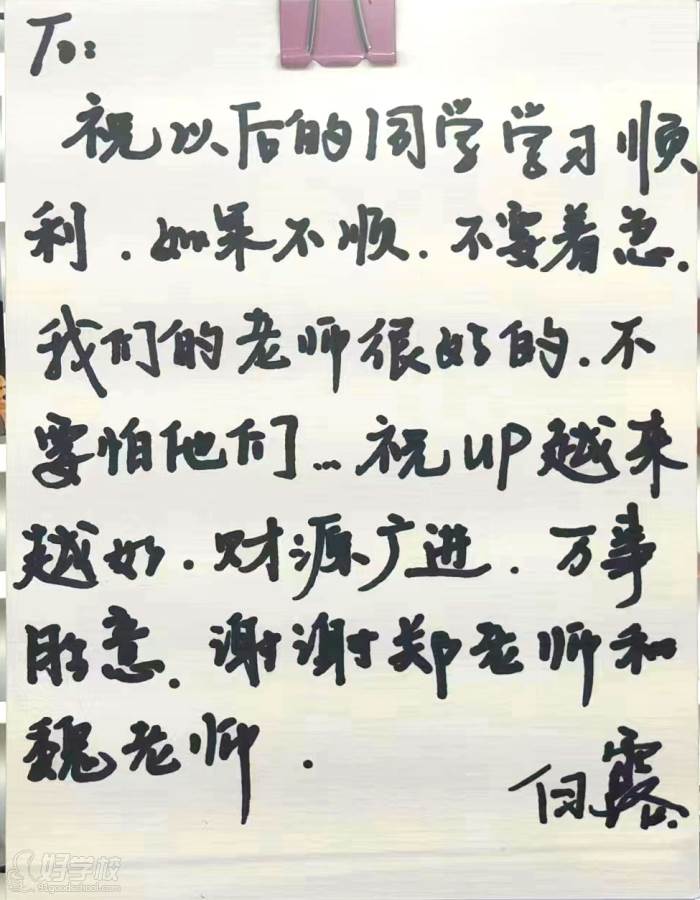 To:
祝以后的同学学习顺
利.如果不顺.不要着急.
我们的老师很好的.不
要怕他们...祝UP越来
越好.财源广进.万事
胜意.谢谢郑老师和
魏老师.
露
好学校
91goodschool.com